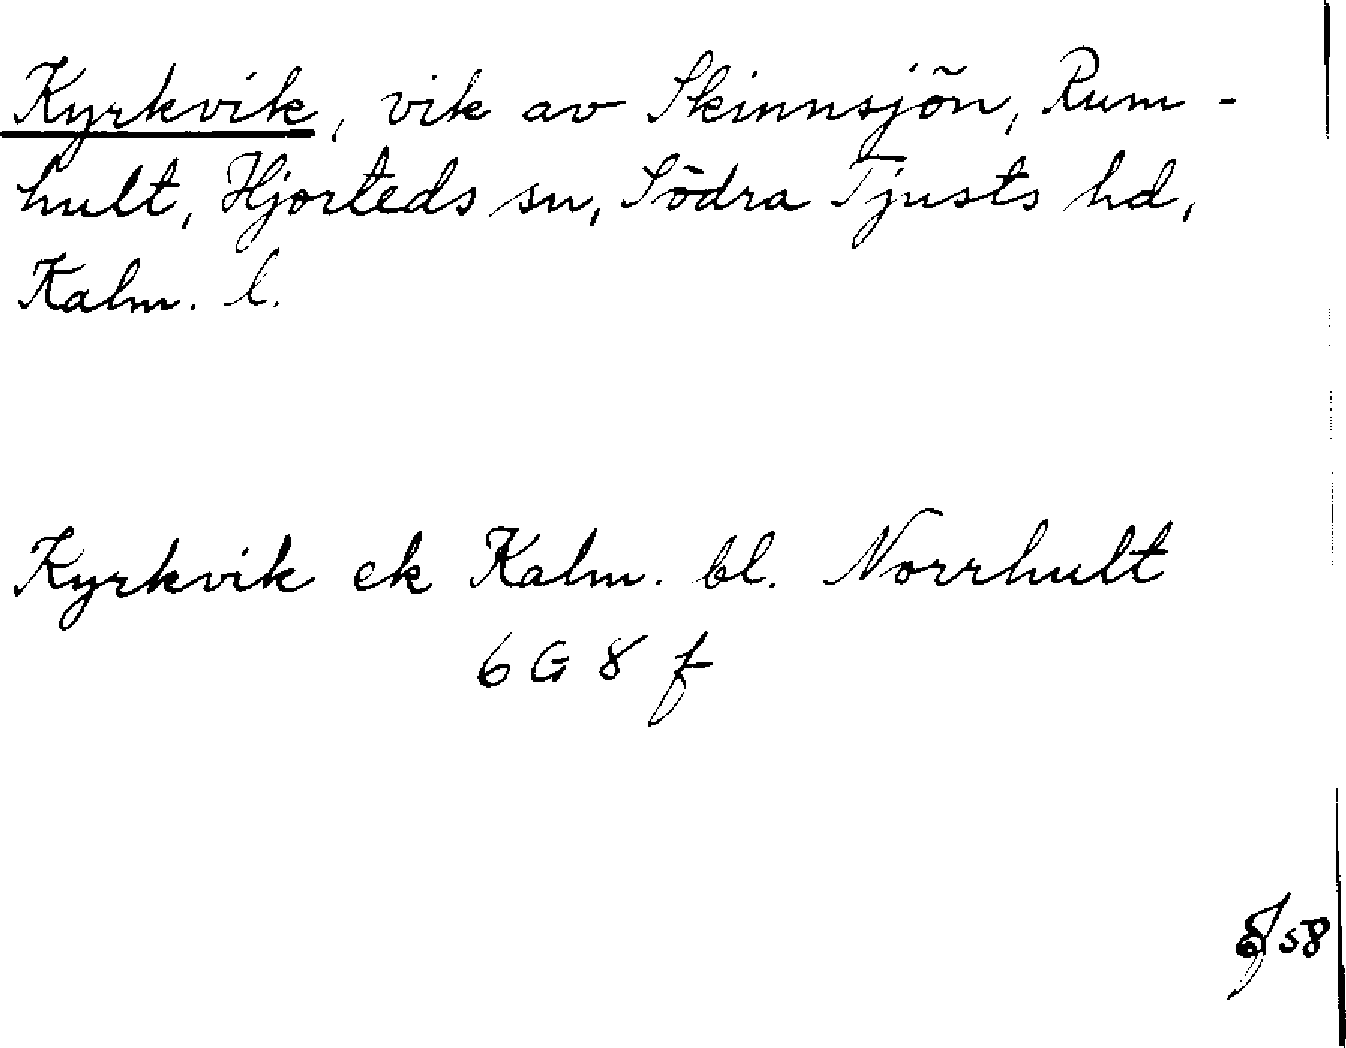 Kyrkvik, vik av Skinnsjön, Rum-
hult, Hjorteds sn, Södra Tjusts hd,
Kalm. l.
Kyrkvik ek Kalm. bl. Norrhult
6 G 8 f
58